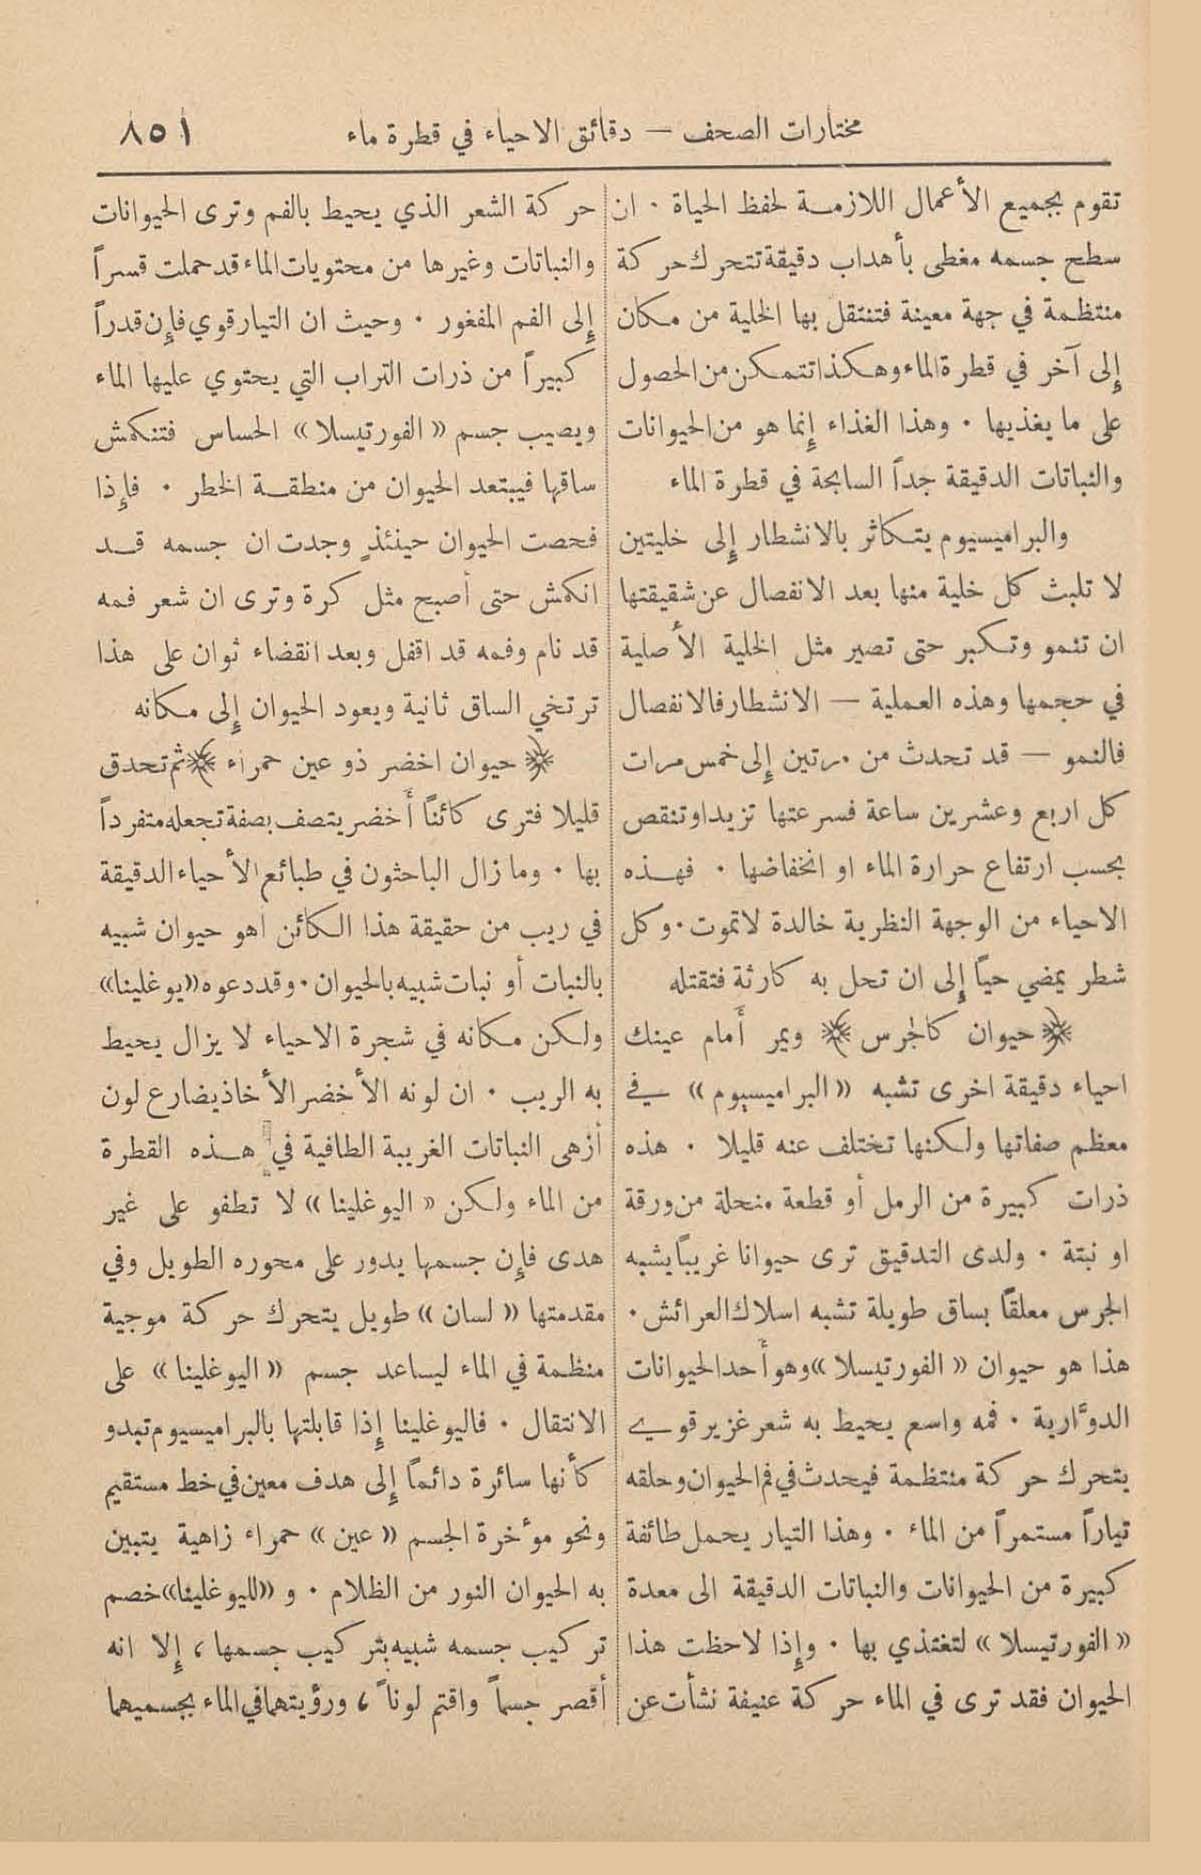 مختارات الصحف — دقائق الاحياء في قطرة ماء ٨٥١
تقوم بجميع الأعمال اللازمة لحفظ الحياة . ان
سطح جسمه مغطى بأهداب دقيقة تتحرك حركة
منتظمة في جهة معينة فتنتقل بها الخلية من مكان
إلى آخر في قطرة الماء وهكذا تتمكن من الحصول
على ما يغذيها . وهذا الغذاء إنما هو من الحيوانات
والنباتات الدقيقة جداً السابحة في قطرة الماء
والبراميسيوم يتكاثر بالانشطار إلى خليتين
لا تلبث كل خلية منها بعد الانفصال عن شقيقتها
ان تنمو وتكبر حتى تصير مثل الخلية الأصلية
في حجمها وهذه العملية — الانشطار فالانفصال
فالنمو — قد تحدث من مرتين إلى خمس مرات
كل اربع وعشرين ساعة فسرعتها تزيد او تنقص
بحسب ارتفاع حرارة الماء او انخفاضها . فهذه
الاحياء من الوجهة النظرية خالدة لا تموت . وكل
شطر يمضي حياً إلى ان تحل به كارثة فتقتله
﴿ حيوان كالجرس ﴾ ويمر أمام عينك
احياء دقيقة اخرى تشبه «البراميسيوم» في
معظم صفاتها ولكنها تختلف عنه قليلا . هذه
ذرات كبيرة من الرمل أو قطعة منحلة من ورقة
او نبتة . ولدى التدقيق ترى حيوانا غريباً يشبه
الجرس معلقاً بساق طويلة تشبه اسلاك العرائش .
هذا هو حيوان «الفورتيسلا» وهو أحد الحيوانات
الدوّارية . فمه واسع يحيط به شعر غزير قوي
يتحرك حركة منتظمة فيحدث في فم الحيوان وحلقه
تياراً مستمراً من الماء . وهذا التيار يحمل طائفة
كبيرة من الحيوانات والنباتات الدقيقة الى معدة
«الفورتيسلا» لتغتذي بها . وإذا لاحظت هذا
الحيوان فقد ترى في الماء حركة عنيفة نشأت عن
حركة الشعر الذي يحيط بالفم وترى الحيوانات
والنباتات وغيرها من محتويات الماء قد حملت قسراً
إلى الفم المفغور . وحيث ان التيار قوي فإن قدراً
كبيراً من ذرات التراب التي يحتوي عليها الماء
ويصيب جسم «الفورتيسلا» الحساس فتنكمش
ساقها فيبتعد الحيوان من منطقة الخطر . فإذا
فحصت الحيوان حينئذٍ وجدت ان جسمه قد
انكمش حتى أصبح مثل كرة وترى ان شعر فمه
قد نام وفمه قد اقفل وبعد انقضاء ثوان على هذا
ترتخي الساق ثانية ويعود الحيوان إلى مكانه
﴿ حيوان اخضر ذو عين حمراء ﴾ ثم تحدق
قليلا فترى كائناً أخضر يتصف بصفة تجعله متفرداً
بها . وما زال الباحثون في طبائع الأحياء الدقيقة
في ريب من حقيقة هذا الكائن اهو حيوان شبيه
بالنبات أو نبات شبيه بالحيوان . وقد دعوه «يوغلينا»
ولكن مكانه في شجرة الاحياء لا يزال يحيط
به الريب . ان لونه الأخضر الأخاذ يضارع لون
أزهى النباتات الغريبة الطافية في هذه القطرة
من الماء ولكن «اليوغلينا» لا تطفو على غير
هدى فإن جسمها يدور على محوره الطويل وفي
مقدمتها «لسان» طويل يتحرك حركة موجية
منظمة في الماء ليساعد جسم «اليوغلينا» على
الانتقال . فاليوغلينا إذا قابلتها بالبراميسيوم تبدو
كأنها سائرة دائماً إلى هدف معين في خط مستقيم
ونحو مؤخرة الجسم «عين» حمراء زاهية يتبين
به الحيوان النور من الظلام . و «لليوغلينا» خصم
تركيب جسمه شبيه بتركيب جسمها ، إلا انه
أقصر جسماً واقتم لوناً ، ورؤيتهما في الماء بجسميهما